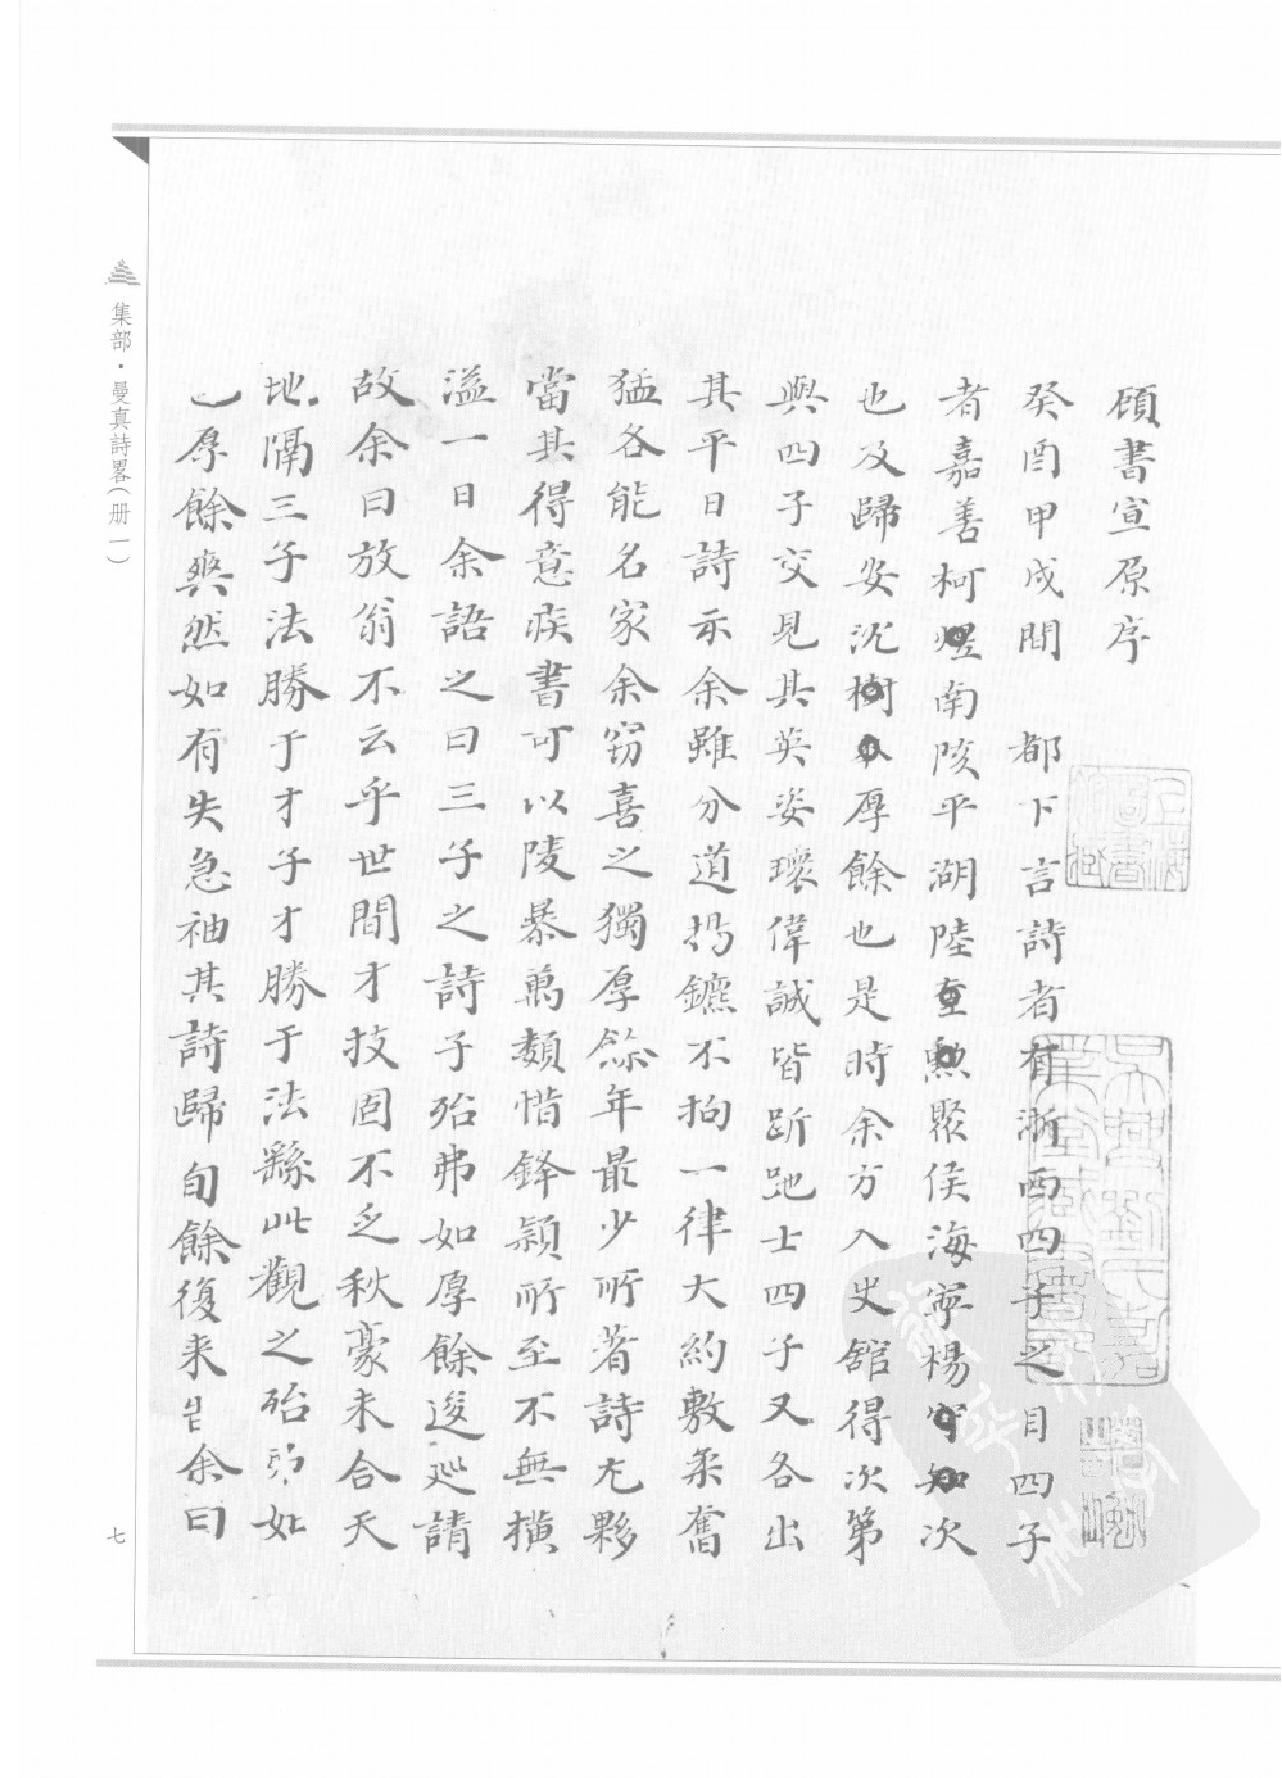 顧書宣原序
癸酉甲戌間　都下言詩者有浙西四子之目四子
者嘉善柯煜南陔平湖陸奎勲聚侯海寧楊守知次
也及歸安沈樹本厚餘也是時余方入史舘得次第
與四子交見其英姿瓌偉誠皆跅跎士四子又各出
其平日詩示余雖分道揚鑣不拘一律大約敷柔奮
猛各能名家余窃喜之獨厚餘年最少所著詩尤夥
當其得意疾書可以陵暴萬類惜鋒颖所至不無橫
溢一日余語之曰三子之詩子殆弗如厚餘逡巡請
故余曰放翁不云乎世間才技固不乏秋豪未合天
地隔三子法勝于才子才勝于法繇此觀之殆弗如
厚餘爽然如有失急袖其詩歸旬餘復来告余曰
集部·曼真詩畧(册一)
七